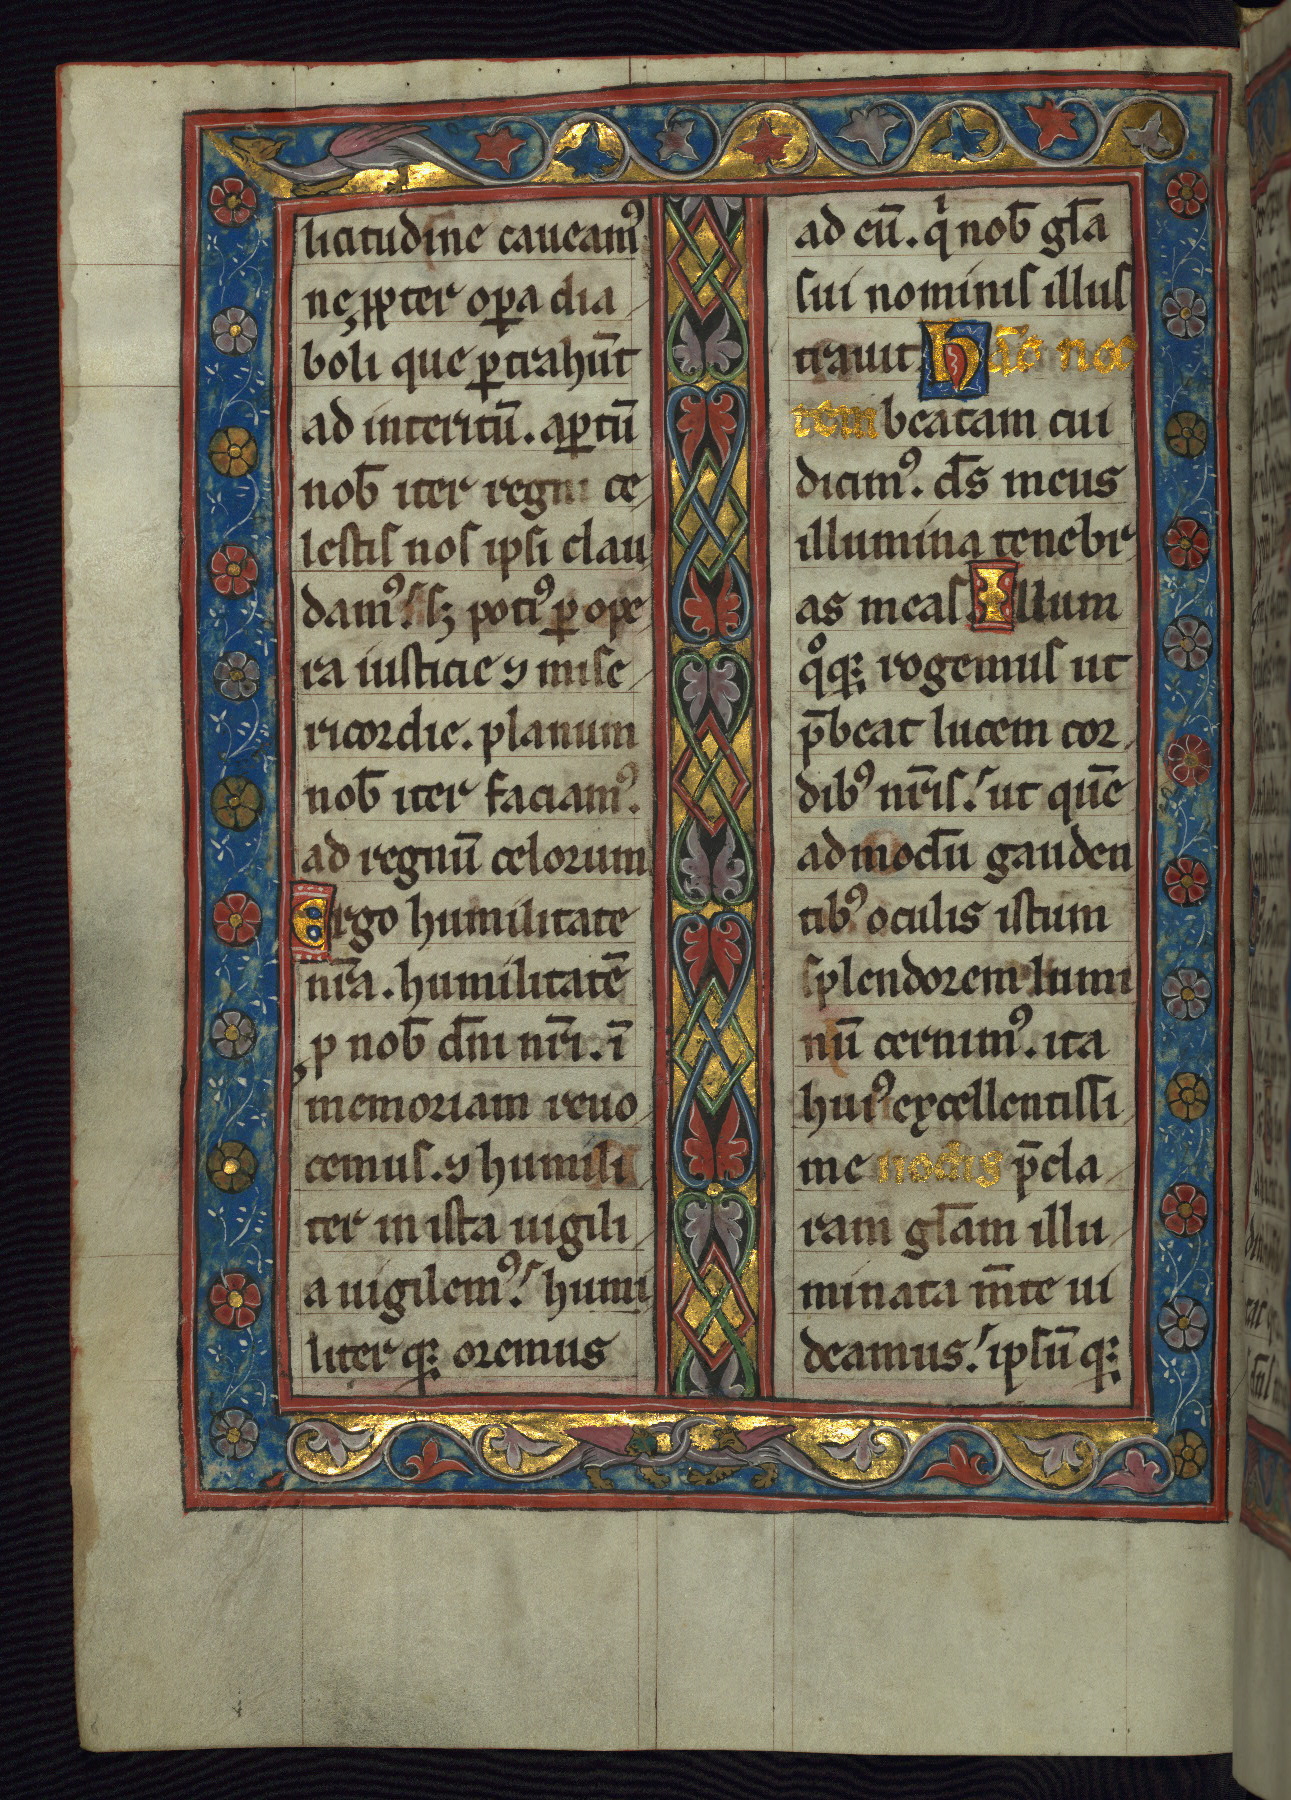 licitudine caueam᾽
ne ꝓpter oꝑa dia
boli que ꝑtrahūt
ad interitū. aꝑtū
nob̄ iter regni ce
lestis nos ipsi clau
dam᾽. sꝫ poti᾽ ꝑ ope
ra iusticie ⁊ mise
ricordie. planum
nob̄ iter faciam᾽.
ad regnū celorum
Ergo humilitate
nr̄a. humilitatē
ꝓ nob̄ dn̄i nr̄i. ī
memoriam reuo
cemus. ⁊ humili
ter in ista uigili
a uigilem᾽. humi
liter qꝫ oremus
ad eū. qͥ nob̄ gl̄a
sui nominis illus
trauit Hāc noc
tem beatam cui
dicim᾽. ds̄ meus
illumina tenebr
as meas Illum
qͦqꝫ rogemus ut
p̄beat lucem cor
dib᾽ nr̄is. ut quē
admodū gauden
tib᾽ oculis istum
splendorem lumi
nū cernim᾽. ita
hui᾽ excellentissi
me noctis p̄cla
ram gl̄am illu
minata m̄te ui
deamus. ipsū qꝫ